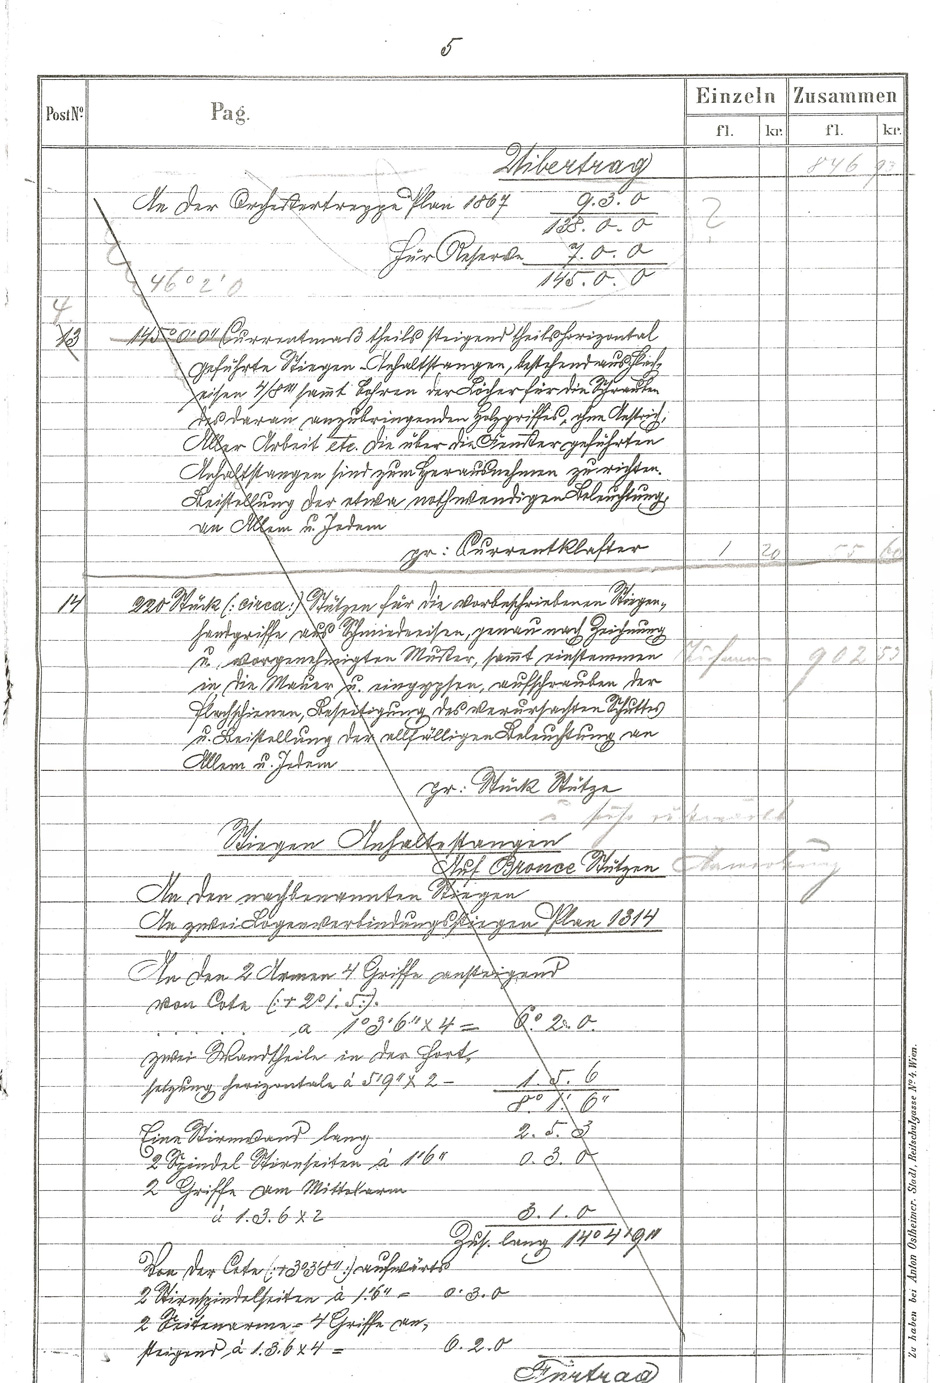 5
Post Nº Pag. Einzeln Zusammen
fl. kr. fl. kr.
Uibertrag 846 93
An der Orchestertreppe Plan 1867 9. 3. 0
?
138. 0. 0
für Reserve 7. 0. 0
145. 0. 0
46° 2' 0
4
13 145° 0' 0" Currentmaß theils steigend theils horizontal
geführte Stiegen-Anhaltstangen, bestehend aus Flach-
eisen sammt Bohren der Löcher für die Schrauben
des daran anzubringenden Holzgriffes, ohne Anstrich,
Aller Arbeit etc. die über die Fenster geführten
Anhaltstangen sind zum Herausnehmen zu richten.
Beistellung der etwa nothwendigen Beleuchtung
an Allem u. Jedem
pr: Currentklafter 1 20 55 60
14 220 Stück (: circa :) Stützen für die vorbeschriebenen Stiegen-
handgriffe aus Schmiedeeisen, genau nach Zeichnung
u. vorgenehmigten Muster, sammt einstemmen 902 53
in die Mauer u. eingypsen, aufschrauben der
Flachschienen, Beseitigung des verursachten Schuttes
u. Beistellung der allfälligen Beleuchtung an
Allem u. Jedem
pr: Stück Stütze
Stiegen Anhaltestangen
Auf Bronce Stützen Anmerkung
An den nachbenannten Stiegen
An zwei Logenverbindungsstiegen Plan 1314
An den 2 Armen 4 Griffe ansteigend
von Cote (: + 2° 1. 5 :)
. . . . . . a 1° 3' 6" x 4 = 6° 2. 0.
zwei Wandtheile in der Fort-
setzung horizontale à 5' 9" x 2 – 1. 5. 6
8° 1' 6"
Eine Stirnwand lang 2. 5. 3
2 Spindel Stirnseiten à 1' 6" 0. 3. 0
2 Griffe am Mittelarm
à 1. 3. 6 x 2 3. 1. 0
Zus. lang 14° 4' 9"
Von der Cote (: + 3° 3' 8" :) aufwärts
2 Stirnspindelseiten à 1' 6" = 0. 3. 0
2 Seitenarme = 4 Griffe an-
steigend à 1. 3. 6 x 4 = 6. 2. 0
Fürtrag
Zu haben bei Anton Ostheimer, Stadt, Reitschulgasse Nº 4. Wien.